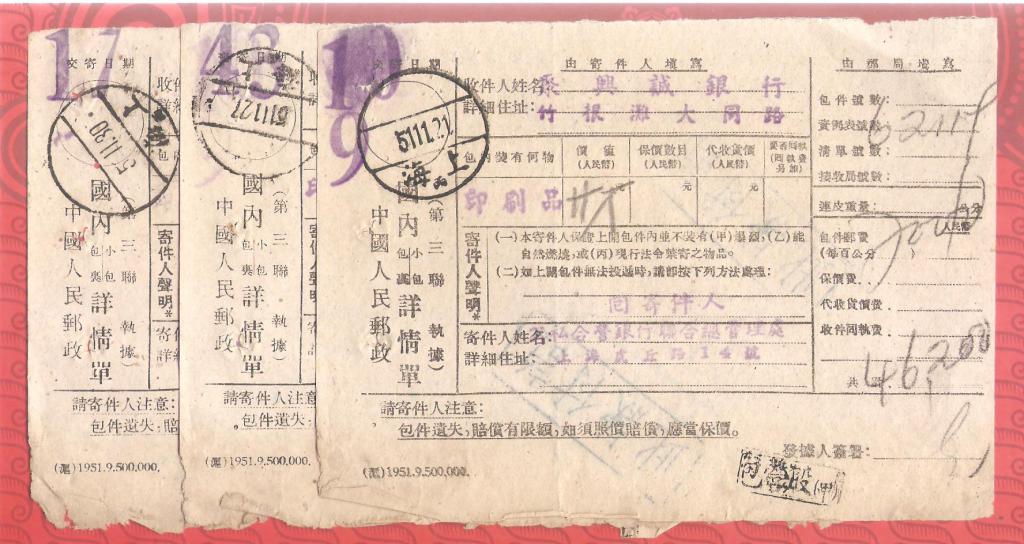 17
交寄日期
上海
51.11.30
國內小包包裹詳情單
(第三聯 執據)
中國人民郵政
寄件人聲明*
請寄件人注意:
包件遺失,賠
(滬)1951.9.500,000.
43
交寄日期
51.11.27
國內小包包裹詳情單
(第三聯 執據)
中國人民郵政
寄件人聲明*
請寄件人注意:
包件遺失,
(滬)1951.9.500,000.
10
9
交寄日期
51.11.21
上海
國內小包包裹詳情單
(第三聯 執據)
中國人民郵政
由寄件人填寫
收件人姓名: 聚興誠銀行
詳細住址: 竹根灘大同路
包內裝有何物
價值(人民幣)
保價數目(人民幣)
代收貨價(人民幣)
印刷品
元 元 元
寄件人聲明*
(一)本寄件人保證上開包件內並不裝有(甲)爆裂,(乙)能
自然燃燒,或(丙)現行法令禁寄之物品。
(二)如上開包件無法投遞時,請卽按下列方法處理:
回寄件人
寄件人姓名: 公私合營銀行聯合總管理處
詳細住址: 上海虎丘路14號
由郵局填寫
包件號數:
清單號數:
接收局號數:
連皮重量: 公分
人民幣
包件郵費
(每百公分 )
保價費:
代收貨價費:
收件回執費:
共
46200
請寄件人注意:
包件遺失,賠償有限額,如須照價賠償,應當保價。
發據人簽署:
(滬)1951.9.500,000.